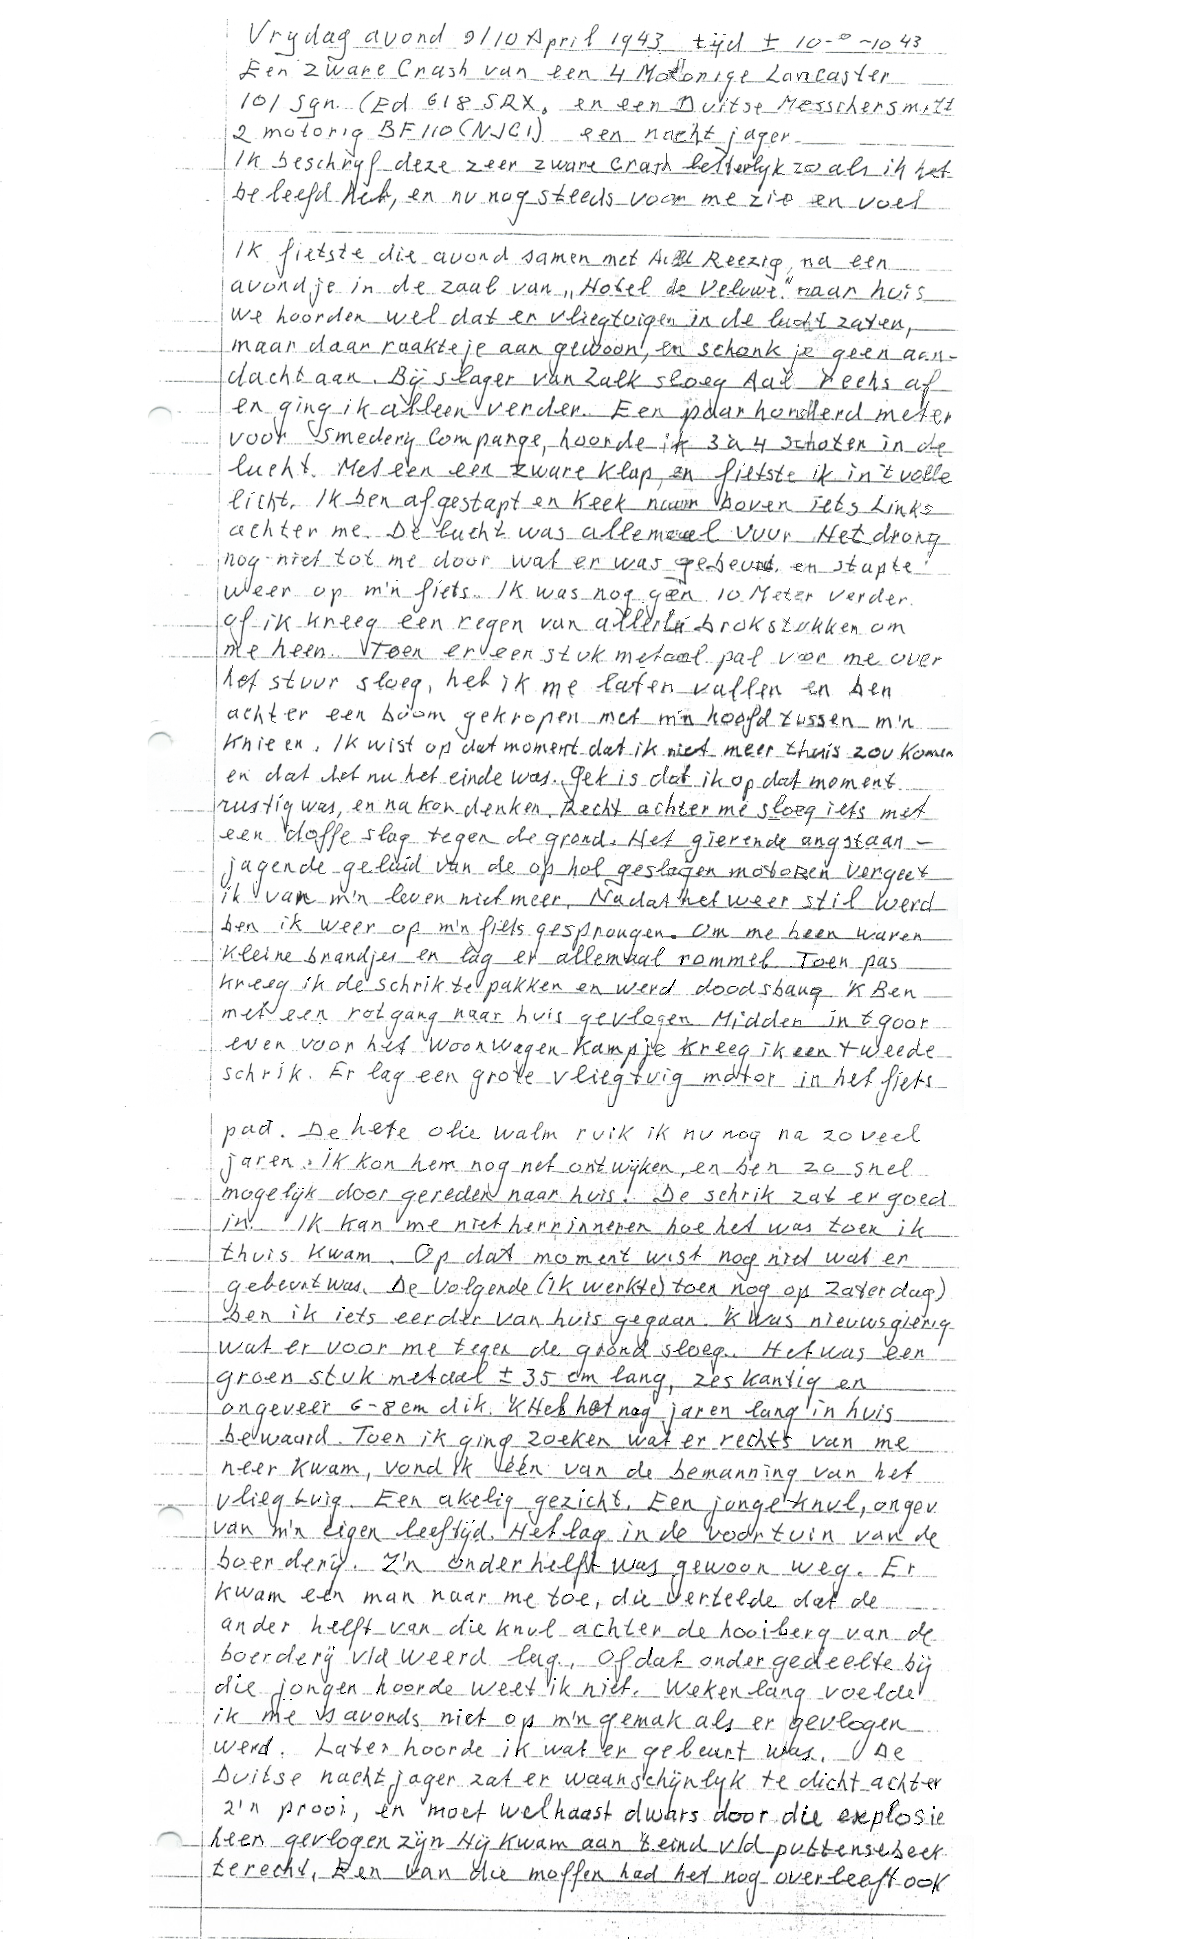 Vrydag avond 9/10 April 1943 tijd ± 10-º-1043
Een zware Crash van een 4 Motorige Lancaster
101 Sqn. (Ed 618 SRX, en een Duitse Messchersmitt
2 motorig BF 110 (NJG1) een nacht jager.
Ik beschryf deze zeer zware crash letterlyk zo als ik het
be leefd heb, en nu nog steeds voor me zie en voel
Ik fietste die avond samen met Reezig, na een
avondje in de zaal van "Hotel de Veluwe" naar huis
We hoorden wel dat er vliegtuigen in de lucht zaten,
maar daar raakte je aan gewoon, en schonk je geen aan-
dacht aan. Bij slager van Zalk sloeg Aal rechs af
en ging ik alleen verder. Een paar honderd meter
voor Smedery Compange, hoorde ik 3 a 4 schoten in de
lucht. Met een een zware klap, en fietste ik in 't volle
licht. Ik ben afgestapt en keek naar boven iets Links
achter me. De lucht was allemaal vuur Het drong
nog niet tot me door wat er was gebeurd, en stapte
weer op m'n fiets. Ik was nog gèèn 10 Meter verder
of ik kreeg een regen van allerlei brokstukken om
me heen. Toen er een stuk metaal pal voor me over
het stuur sloeg, heb ik me laten vallen en ben
achter een boom gekropen met m'n hoofd tussen m'n
Knie en. Ik wist op dat moment dat ik niet meer thuis zou komen
en dat het nu het einde was. Gek is dat ik op dat moment
rustig was, en na kon denken. Recht achter me sloeg iets met
een doffe slag tegen de grond. Het gierende angstaan-
jagende geluid van de op hol geslagen motoren vergeet
ik van m'n leven niet meer. Nadat het weer stil werd
ben ik weer op m'n fiets gesprongen. Om me heen waren
kleine brandjes en lag er allemaal rommel Toen pas
kreeg ik de schrik te pakken en werd doodsbang 'k Ben
met een rotgang naar huis gevlogen Midden in t goor
even voor het woonwagen kampje kreeg ik een tweede
schrik. Er lag een grote vliegtuig motor in het fiets
pad. De hete olie walm ruik ik nu nog na zo veel
jaren. ik kon hem nog net ontwijken, en ben zo snel
mogelijk door gereden naar huis! De schrik zat er goed
in. Ik kan me niet herrinneren hoe het was toen ik
thuis kwam. Op dat moment wist nog niet wat er
gebeurt was. De volgende (ik werkte) toen nog op Zaterdag)
ben ik iets eerder van huis gegaan. 'k Was nieuwsgierig
wat er voor me tegen de grond sloeg. Het was een
groen stuk metaal ± 35 cm lang, zes kantig en
ongeveer 6-8 cm dik. 'k Heb het nog jaren lang in huis
bewaard. Toen ik ging zoeken wat er rechts van me
neer kwam, vond ik één van de bemanning van het
vliegtuig. Een akelig gezicht. Een jonge knul, ongev
van m'n eigen leeftijd. Het lag in de voortuin van de
boerderij. Z'n onder helft was gewoon weg. Er
kwam een man naar me toe, die vertelde dat de
ander helft van die knul achter de hooiberg van de
boerderij v/d Weerd lag. Of dat onder gedeelte bij
die jongen hoorde weet ik niet. Weken lang voelde
ik me 's avonds niet op m'n gemak als er gevlogen
werd. Later hoorde ik wat er gebeurt was. De
Duitse nacht jager zat er waanschijnlyk te dicht achter
z'n prooi, en moet welhaast dwars door die explosie
heen gevlogen zijn Hij kwam aan 't eind v/d puttensebeek
terecht. Een van die moffen had het nog overleeft ook